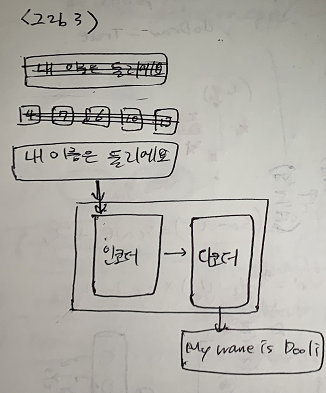 <그림 3>
내 이름은 둘리에요
4 7 26 10 13
내 이름은 둘리에요
인코더 → 디코더
My name is Dooli